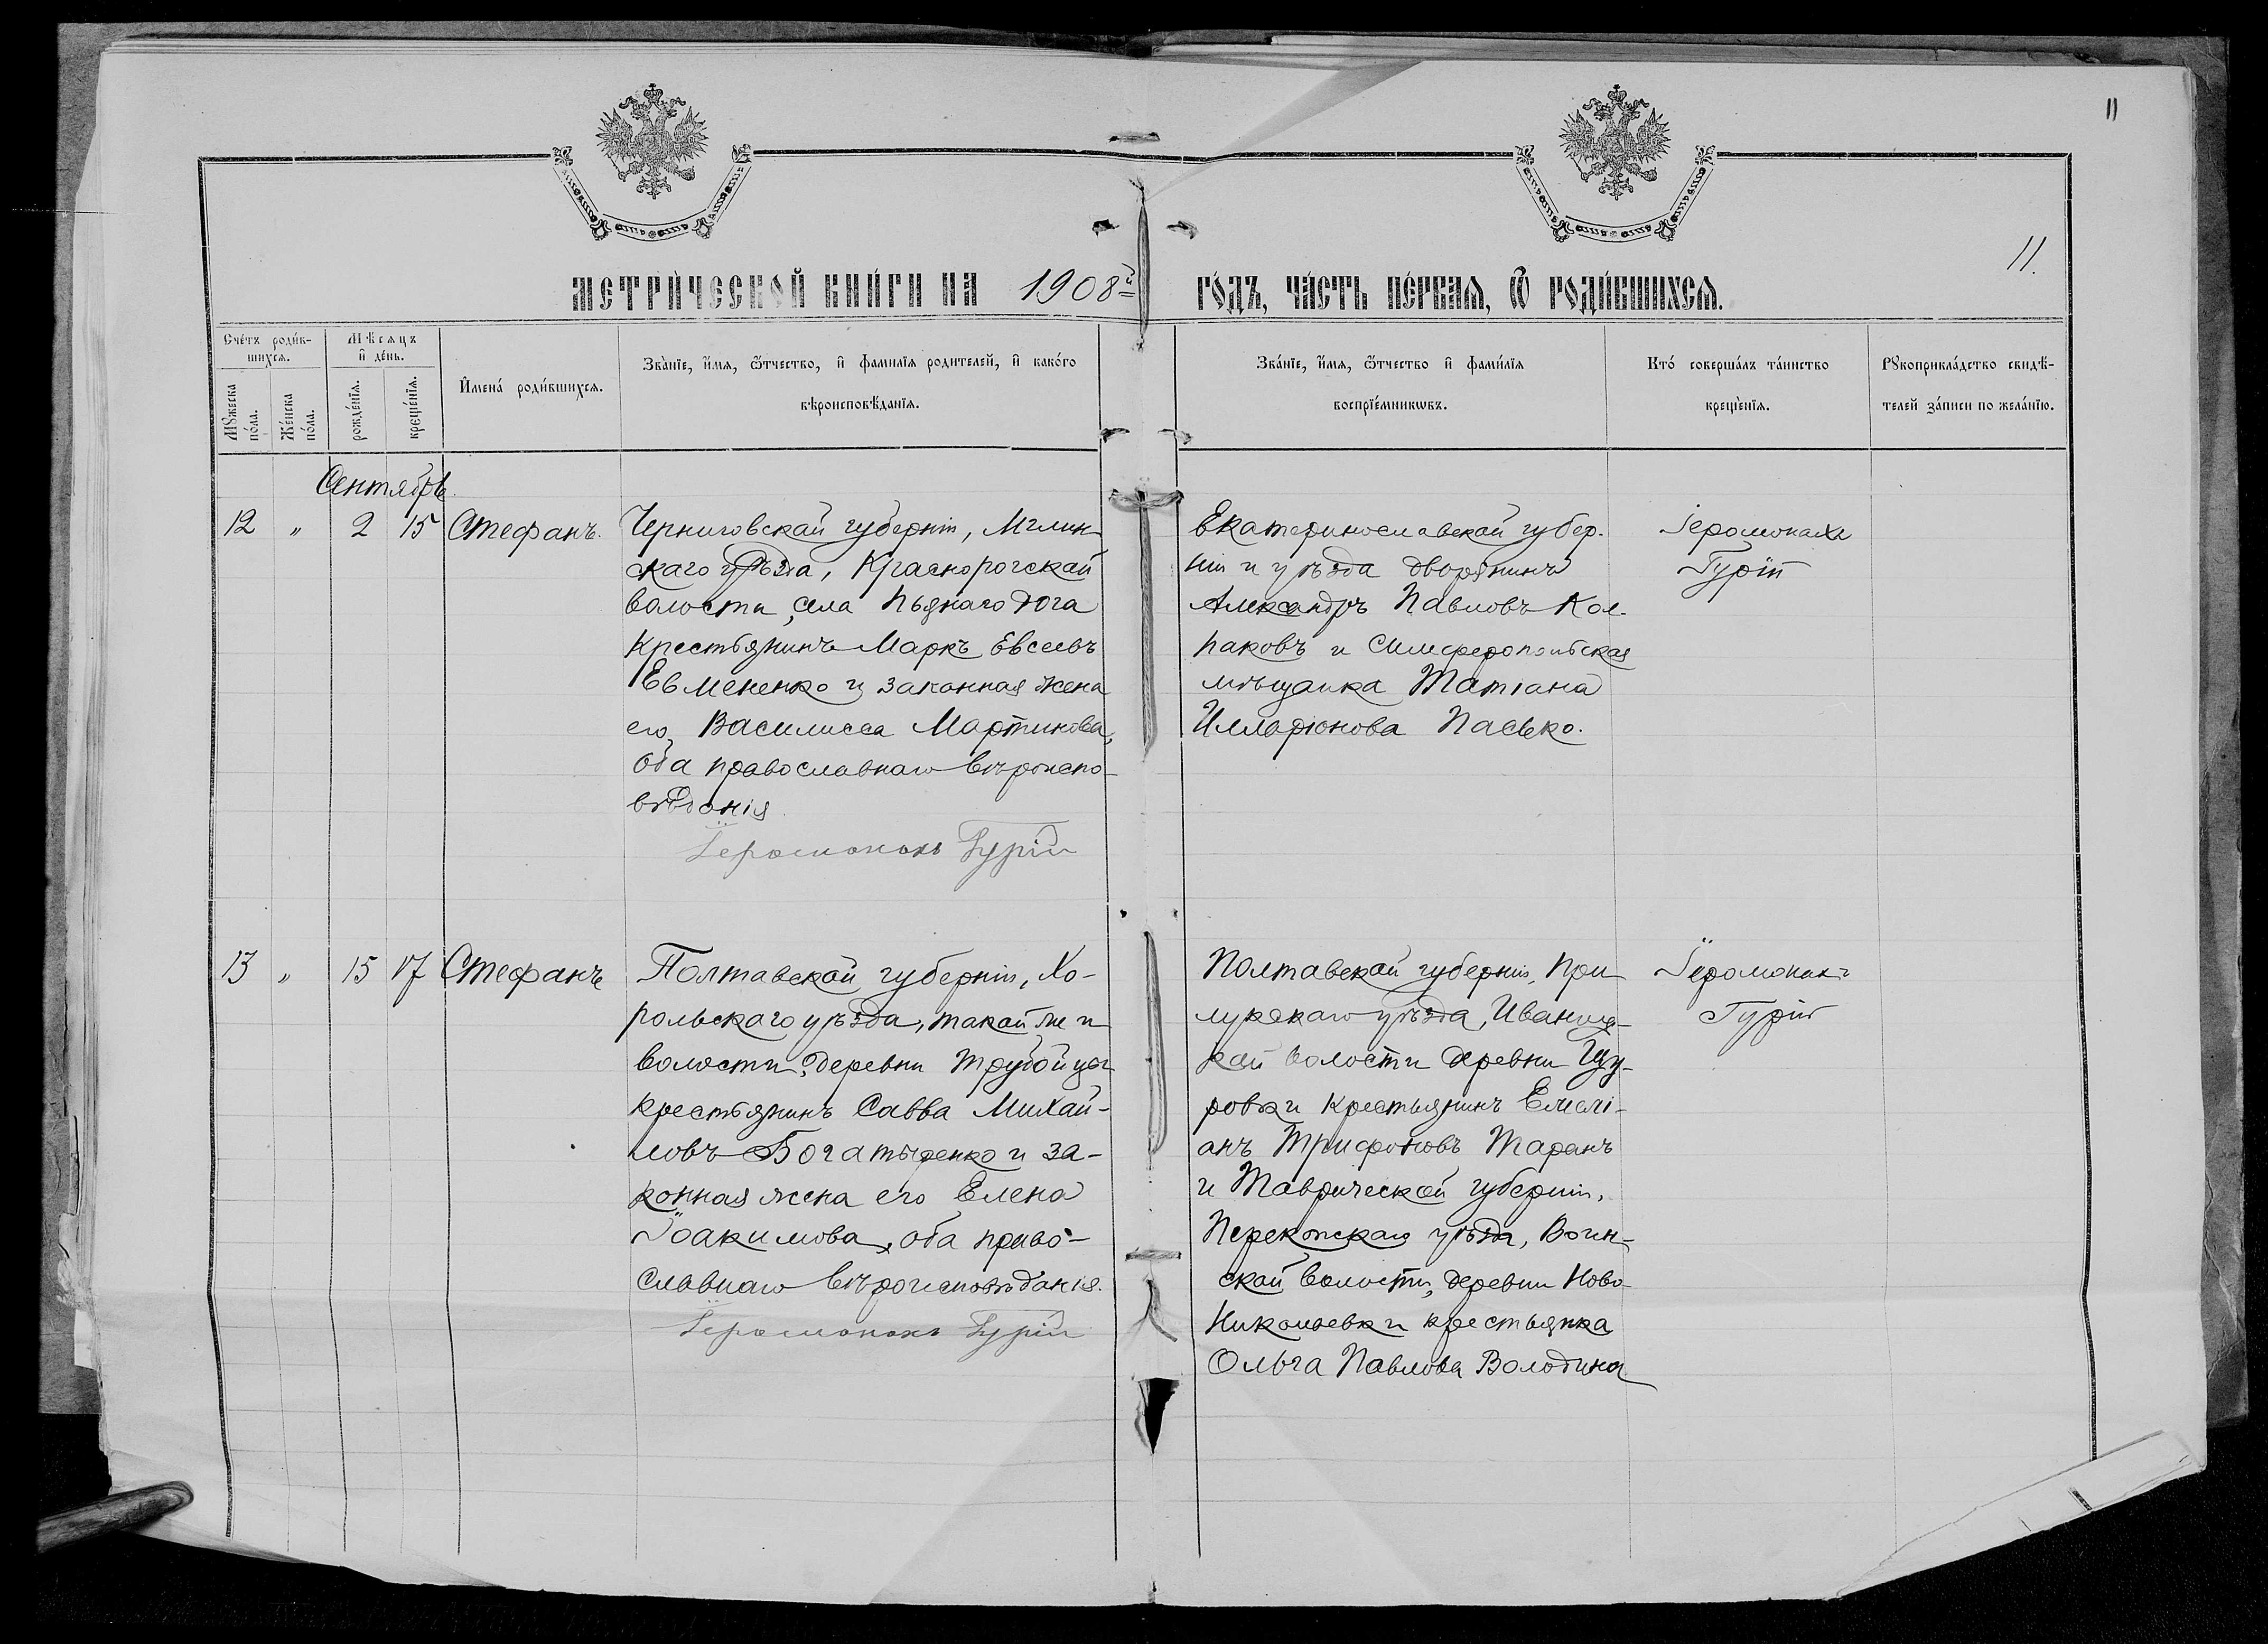 11
МЕТРИ́ЧЕСКОЙ КНИ́ГИ НА 1908й ГО́ДЪ, ЧА́СТЬ ПЕ́РВАЯ, Ѿ РОДИ́ВШИХСЯ.
11.
Сче́тъ роди́в-
шихся.
Мѣ́сяцъ
и̂ де́нь.
Мꙋ́жеска
по́ла.
Же́нска
по́ла.
рожде́нїя.
креще́нїя.
И̂мена́ роди́вшихся.
Зва́нїе, и́мя, ѻ́тчество, и̂ фами́лїя роди́телей, и̂ како́го
вѣроисповѣ́данїя.
Зва́нїе, и́мя, ѻ́тчество и̂ фами́лїя
воспрїе́мникѡвъ.
Кто́ соверша́лъ та́инство
креще́нїя.
Рꙋкоприкла́дство свидѣ́-
телей за́писи по жела́нїю.
Сентябрь.
12 " 2 15 Стефанъ.
Черниговской губерніи, Мглин-
скаго уѣзда, Краснорогской
волости, села Пьянаго Рога
крестьянинъ Маркъ Евсеевъ
Евмененко и законная жена
его Василисса Мартинова,
оба православнаго вѣроиспо-
вѣданія
Іеромонахъ Гурій
Екатеринославской губер-
ніи и уѣзда дворянинъ
Александръ Павловъ Кол-
паковъ и Симферопольская
мѣщанка Татіана
Илларіонова Пасько.
Іеромонахъ
Гурій
13 " 15 17 Стефанъ
Полтавской губерніи, Хо-
рольскаго уѣзда, такой же и
волости, деревни Трубойцы
крестьянинъ Савва Михай-
ловъ Богатыренко и за-
конная жена его Елена
Іоакимова, оба право-
славнаго вѣроисповѣданія.
Іеромонахъ Гурій
Полтавской губерніи, При-
лукскаго уѣзда, Иваниц-
кой волости деревни Щу-
ровки крестьянинъ Емелі-
анъ Трифоновъ Таранъ
и Таврической губерніи,
Перекопскаго уѣзда, Воин-
ской волости, деревни Ново-
Николаевки крестьянка
Ольга Павлова Володина
Іеромонахъ
Гурій